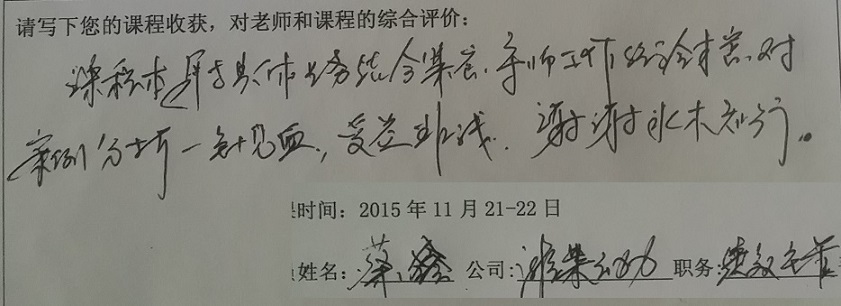 请写下您的课程收获，对老师和课程的综合评价：
课程本身与具体业务结合紧密，老师工作经验丰富，对
案例分析一针见血，受益匪浅．谢谢水木知行。
时间：2015 年 11 月 21-22 日
姓名：蔡 公司： 职务：绩效主管